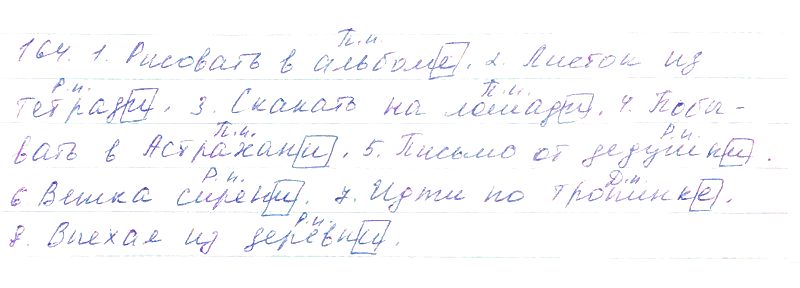 П.п.
164. 1. Рисовать в альбоме. 2. Листок из
Р.п. П.п.
тетради. 3. Скакать на лошади. 4. Побы-
П.п. Р.п.
вать в Астрахани. 5. Письмо от дедушки.
Р.п. Д.п.
6 Ветка сирени. 7. Идти по тропинке.
Р.п.
8. Выехал из деревни.